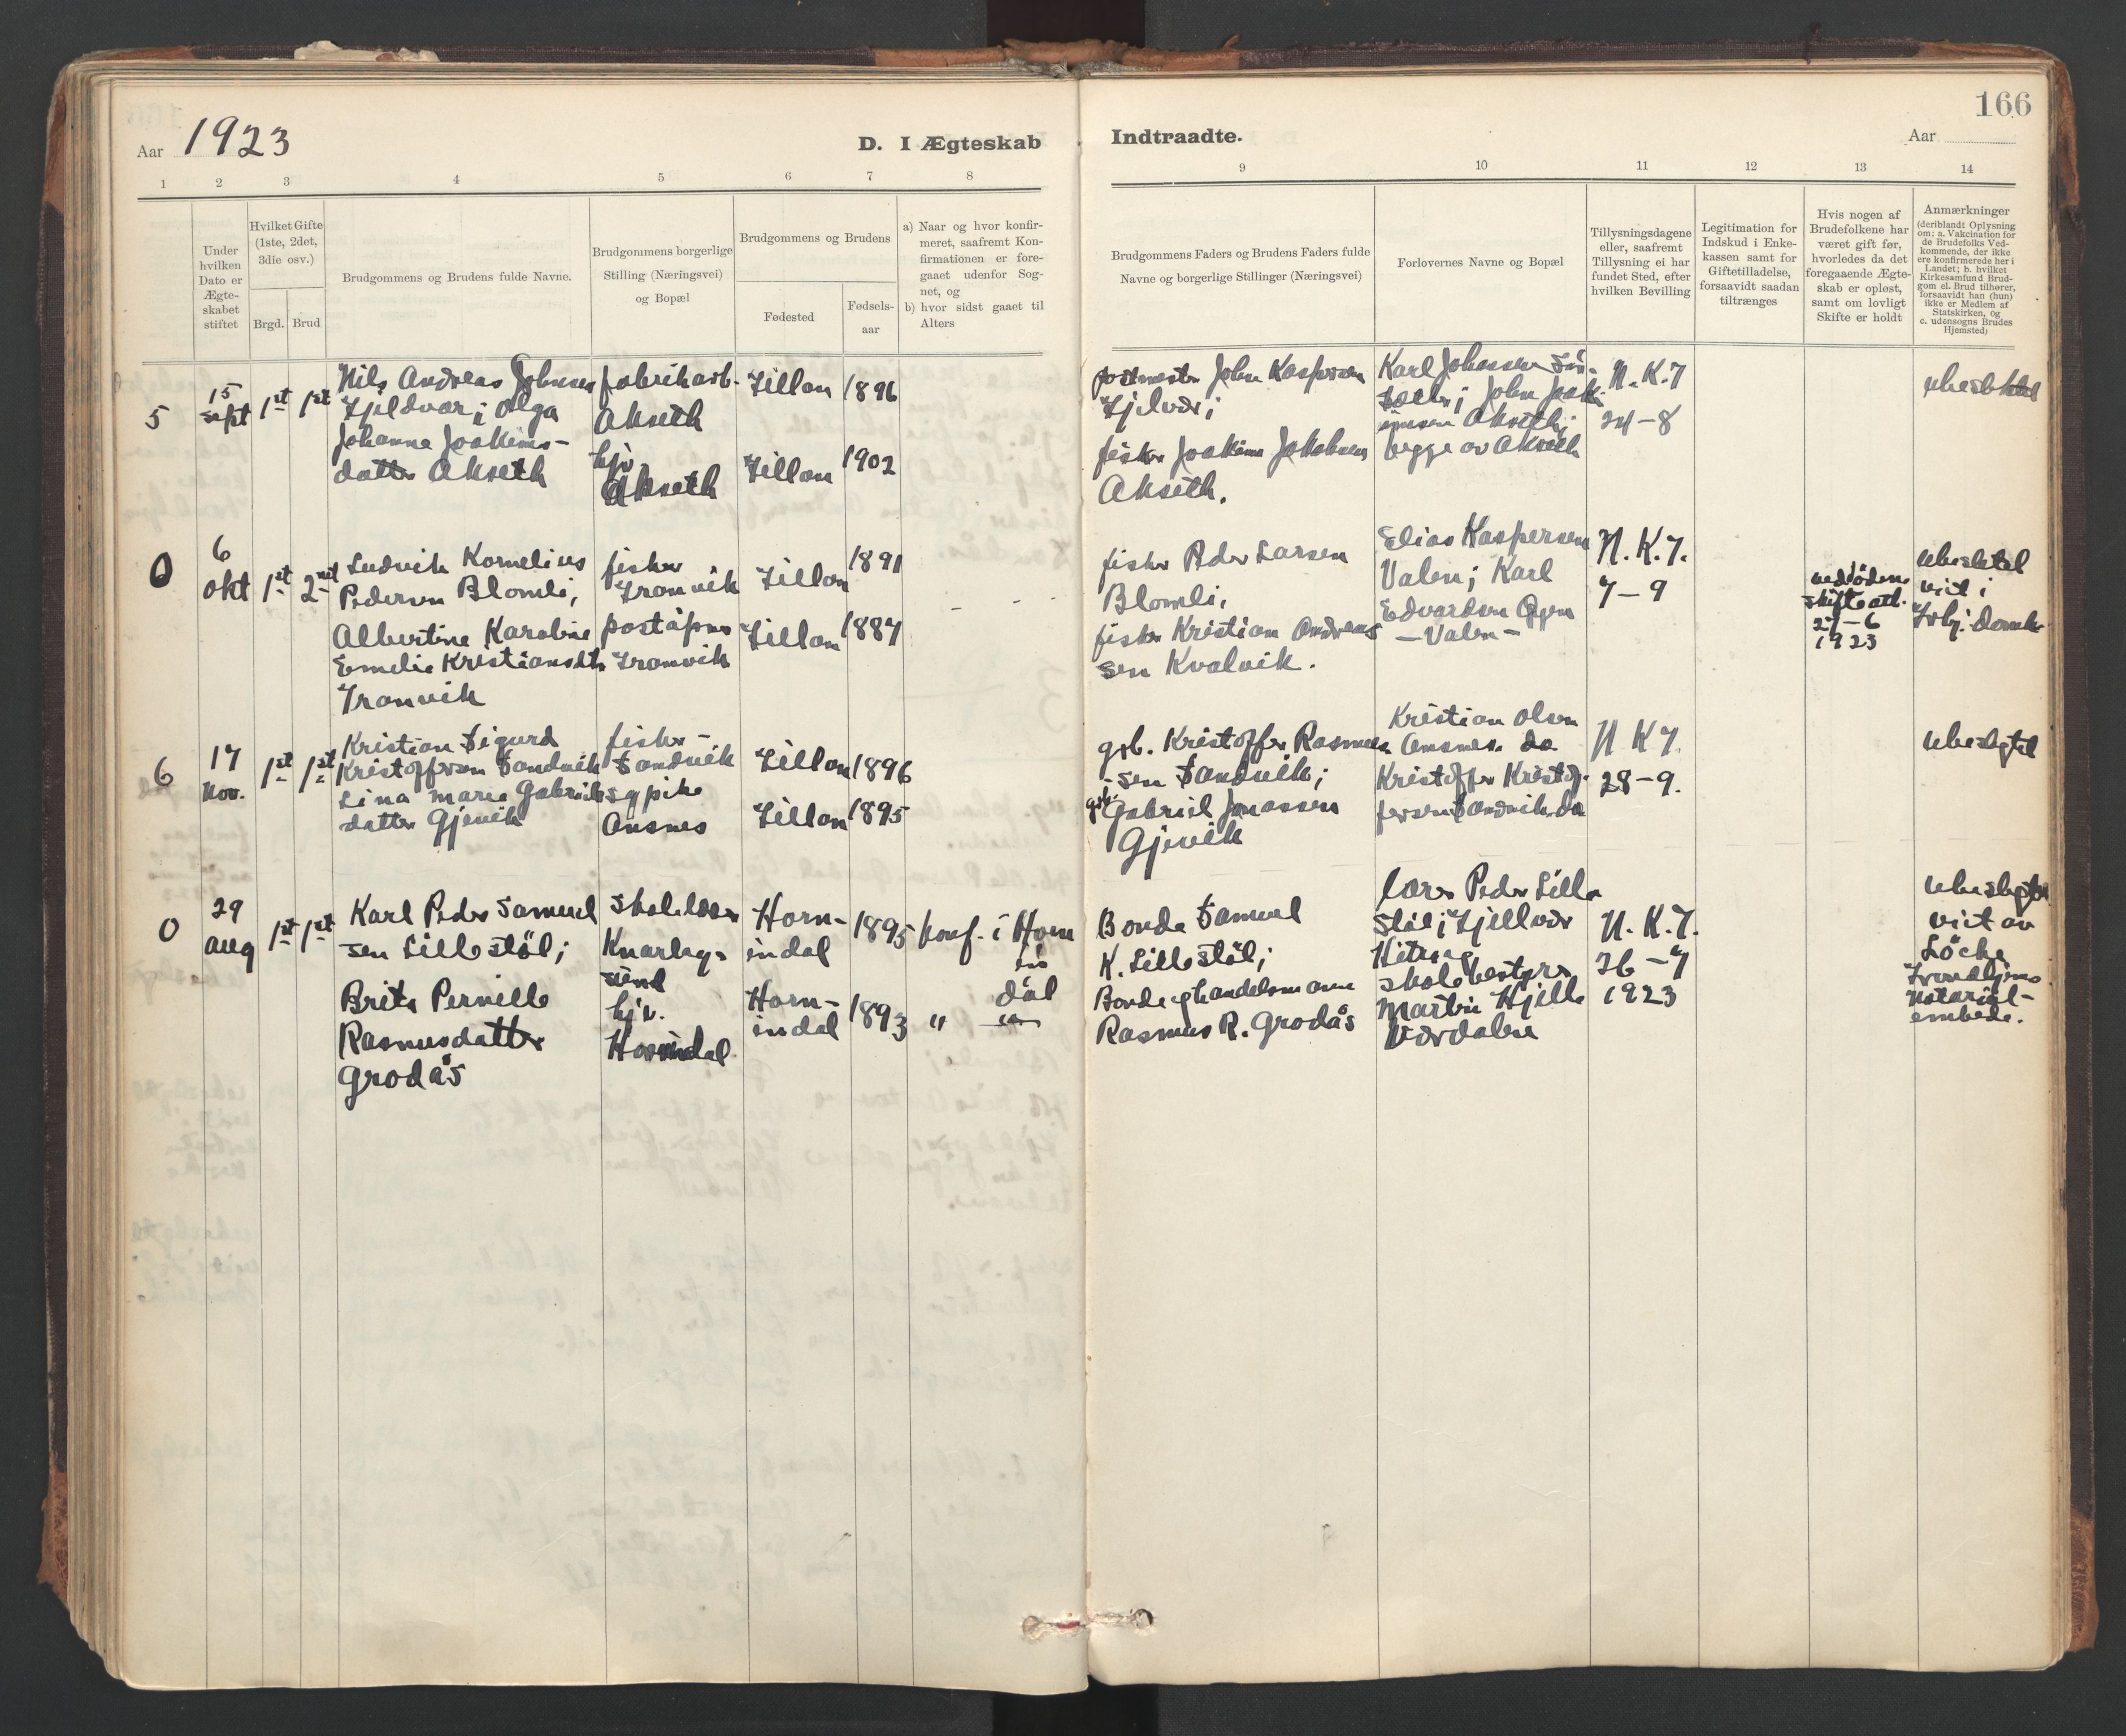 166
Aar 1923
D. I Ægteskab
Indtraadte.
Aar
1 2 3 4 5 6 7 8
9 10 11 12 13 14
Under hvilken Dato er Ægte-skabet stiftet
Hvilket Gifte (1ste, 2det, 3die osv.)
Brgd. Brud
Brudgommens og Brudens fulde Navne.
Brudgommens borgerlige
Stilling (Næringsvei)
og Bopæl
Brudgommens og Brudens
Fødested
Fødsels-
aar
a) Naar og hvor konfir-
meret, saafremt Kon-
firmationen er fore-
gaaet udenfor Sog-
net, og
b) hvor sidst gaaet til
Alters
Brudgommens Faders og Brudens Faders fulde
Navne og borgerlige Stillinger (Næringsvei)
Forlovernes Navne og Bopæl
Tillysningsdagene
eller, saafremt
Tillysning ei har
fundet Sted, efter
hvilken Bevilling
Legitimation for
Indskud i Enke-
kassen samt for
Giftetilladelse,
forsaavidt saadan
tiltrænges
Hvis nogen af
Brudefolkene har
været gift før,
hvorledes da det
foregaaende Ægte-
skab er opløst,
samt om lovligt
Skifte er holdt
Anmærkninger
(deriblandt Oplysning
om: a. Vakcination for
de Brudefolks Ved-
kommende, der ikke
ere konfirmerede her i
Landet; b. hvilket
Kirkesamfund Brud-
gom el. Brud tilhører,
forsaavidt han (hun)
ikke er Medlem af
Statskirken, og
c. udensogns Brudes
Hjemsted)
5
15
sept
1st 1st
Nils Andreas Johnsen
Fjeldvær; Olga
Johanna Joakims-
datter Akseth
fabrikarb.
Akseth
hjv
Akseth
Fillan 1896
Fillan 1902
postmester John Kaspersen
Fjelvær;
fisker Joakim Jakobsen
Akseth.
Karl Johansen
John Joaki
msen Akseth;
begge av Akseth
N.K.F
24-8
0
6
okt
1st 2net
Ludvik Kornelius
Pedersen Blomli,
Albertine Karoline
Emelie Kristiansdtr
Tranvik
fisker
Tranvik
poståpner
Tranvik
Fillan 1891
Fillan 1887
- - -
fisker Peder Larsen
Blomli,
fisker Kristian Andreas
sen Kvalvik.
Elias Kaspersen
Valen; Karl
Edvardsen
- Valen -
N.K.F.
7-9
ved döden
skifteatt.
27-6
1923
ubeslektet
viet i
Trhj. domk
6
17
Nov.
1st 1st
Kristian Sigurd
Kristoffersen Sandvik
Lina Marie Gabriels
datter Gjevik
fisker -
Sandvik
sypike
Ansnes
Fillan 1896
Fillan 1895
grb. Kristoffer Rasmus
-sen Sandvik;
grb. Gabriel Jonassen
Gjevik
Kristian Olsen
Ansnes. da
Kristoffer Kristof-
fersen Sandvik. da
N K F.
28-9.
ubeslegtet
0
29
aug
1st 1st
Karl Peder Samuel
sen Lillestöl;
Brita Pernille
Rasmusdatter
Grodås
skolelærer
Knarlag-
sund
hjv.
Hornindal
Horn-
indal 1895
Horn-
indal 1893
konf. i Horn
in
dal
" — " —
Bonde Samuel
K. Lillestöl;
Bonde og handelsmann
Rasmus R. Grodås
lærer Peder Lille
Støl; Fjellvær
Hitra og
skolebestyrer
Martin Hjelle
Værdalen
N.K.F.
26-7
1923
ubeslegtet
viet av
Löchen
Trondhjems
Notarial-
embede.